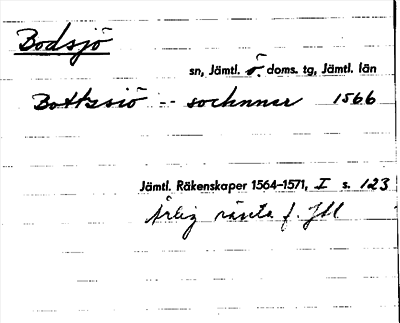 Bodsjö
sn, Jämtl. ö. doms. tg, Jämtl. län
Bottzsiö -- sochnner 1566
Jämtl. Räkenskaper 1564–1571, I s. 123
Årlig ränta f. Jtl